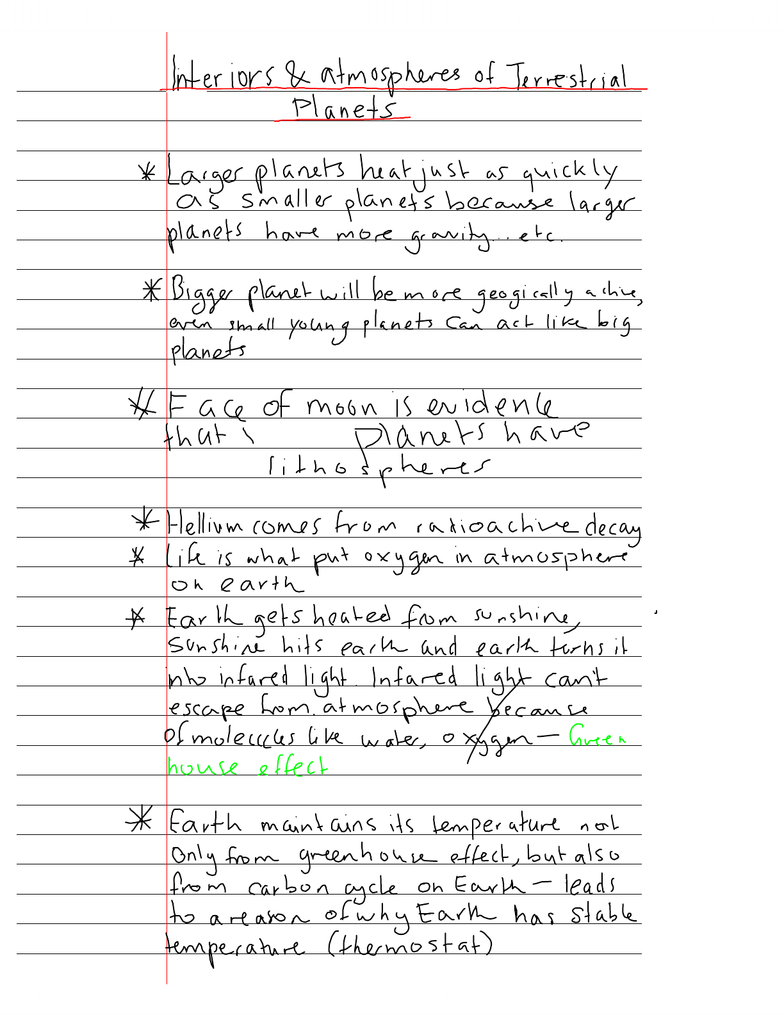 Interiors & atmospheres of Terrestrial
Planets
* Larger planets heat just as quickly
as smaller planets because larger
planets have more gravity...etc.
* Bigger planet will be more geogically active,
even small young planets can act like big
planets
* Face of moon is evidence
that planets have
lithospheres
* Hellium comes from radioactive decay
* Life is what put oxygen in atmosphere
on earth
* Earth gets heated from sunshine,
sunshine hits earth and earth turns it
into infared light. Infared light can't
escape from atmosphere because
of moleccles like water, oxygen - Green
house effect
* Earth maintains its temperature not
only from greenhouse effect, but also
from carbon cycle on Earth - leads
to a reason of why Earth has stable
temperature (thermostat)